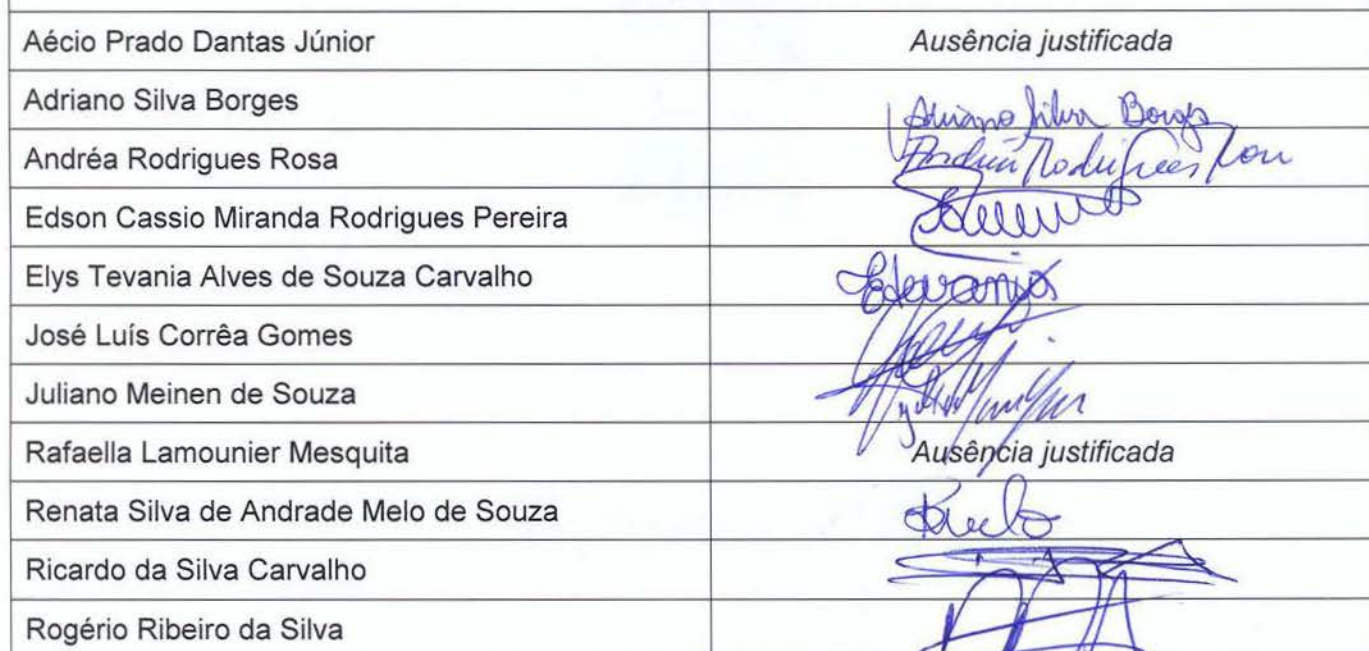 Aécio Prado Dantas Júnior Ausência justificada
Adriano Silva Borges Adriano Silva Borges
Andréa Rodrigues Rosa Andréa Rodrigues Rosa
Edson Cassio Miranda Rodrigues Pereira
Elys Tevania Alves de Souza Carvalho Etevania
José Luís Corrêa Gomes
Juliano Meinen de Souza
Rafaella Lamounier Mesquita Ausência justificada
Renata Silva de Andrade Melo de Souza
Ricardo da Silva Carvalho
Rogério Ribeiro da Silva